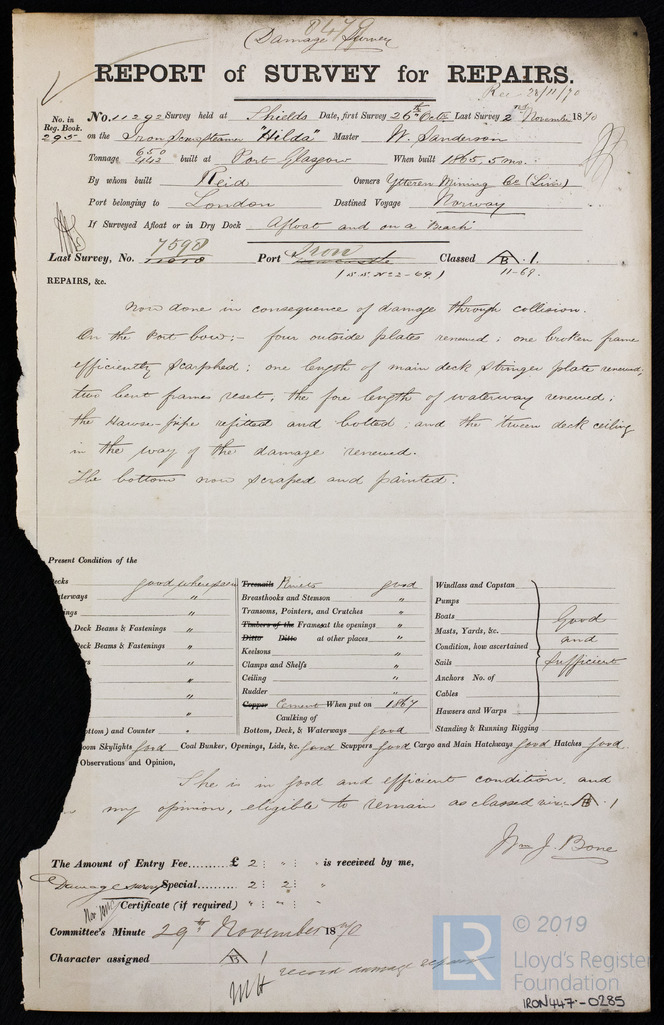 Damage Survey
REPORT of SURVEY for REPAIRS.
Rec 28/11/70
No. in Reg. Book. 295
No. 11292 Survey held at Shields Date, first Survey 26th Octr Last Survey 2nd November 1870
on the Iron Screw Steamer "Hilda" Master W. Sanderson
Tonnage 650 442 built at Port Glasgow When built 1865. 5 mo.
By whom built Reid Owners Ytteren Mining Co (Lim)
Port belonging to London Destined Voyage Norway
If Surveyed Afloat or in Dry Dock Afloat and on a Beach
Last Survey, No. 7598 Port Iron Newcastle Classed A B .1.
(S.S. No 2-69.) 11-69.
REPAIRS, &c.
Now done in consequence of damage through collision.
On the Port bow:- four outside plates renewed; one broken frame
efficiently scarphed; one length of main deck stringer plate renewed;
two bent frames reset, the fore length of waterway renewed;
the Hawse-pipe refitted and bolted; and the 'tween deck ceiling
in the way of the damage renewed.
The bottom now scraped and painted.
Present Condition of the
ecks good where seen
terways "
ings "
Deck Beams & Fastenings "
eck Beams & Fastenings "
rs "
"
"
"
ottom) and Counter "
Treenails Rivets good
Breasthooks and Stemson "
Transoms, Pointers, and Crutches "
Timbers of the Frames at the openings "
Ditto Ditto at other places "
Keelsons "
Clamps and Shelfs "
Ceiling "
Rudder "
Copper Cement When put on 1867
Caulking of
Bottom, Deck, & Waterways good
Windlass and Capstan
Pumps
Boats
Masts, Yards, &c.
Condition, how ascertained
Sails
Anchors No. of
Cables
Hawsers and Warps
Standing & Running Rigging
Good and sufficient
oom Skylights good Coal Bunker, Openings, Lids, &c. good Scuppers good Cargo and Main Hatchways good Hatches good
Observations and Opinion,
She is in good and efficient condition, and
my opinion, eligible to remain as classed viz:- A B .1
Wm J. Bone
The Amount of Entry Fee......... £ 2 : " : " is received by me,
Damage survey Special......... 2 : 2 : "
Certificate (if required) " : " : "
Committee's Minute 29th November 1870
Character assigned A B 1
record damage repairs
© 2019
LR Lloyd's Register
Foundation
IRON447-0285